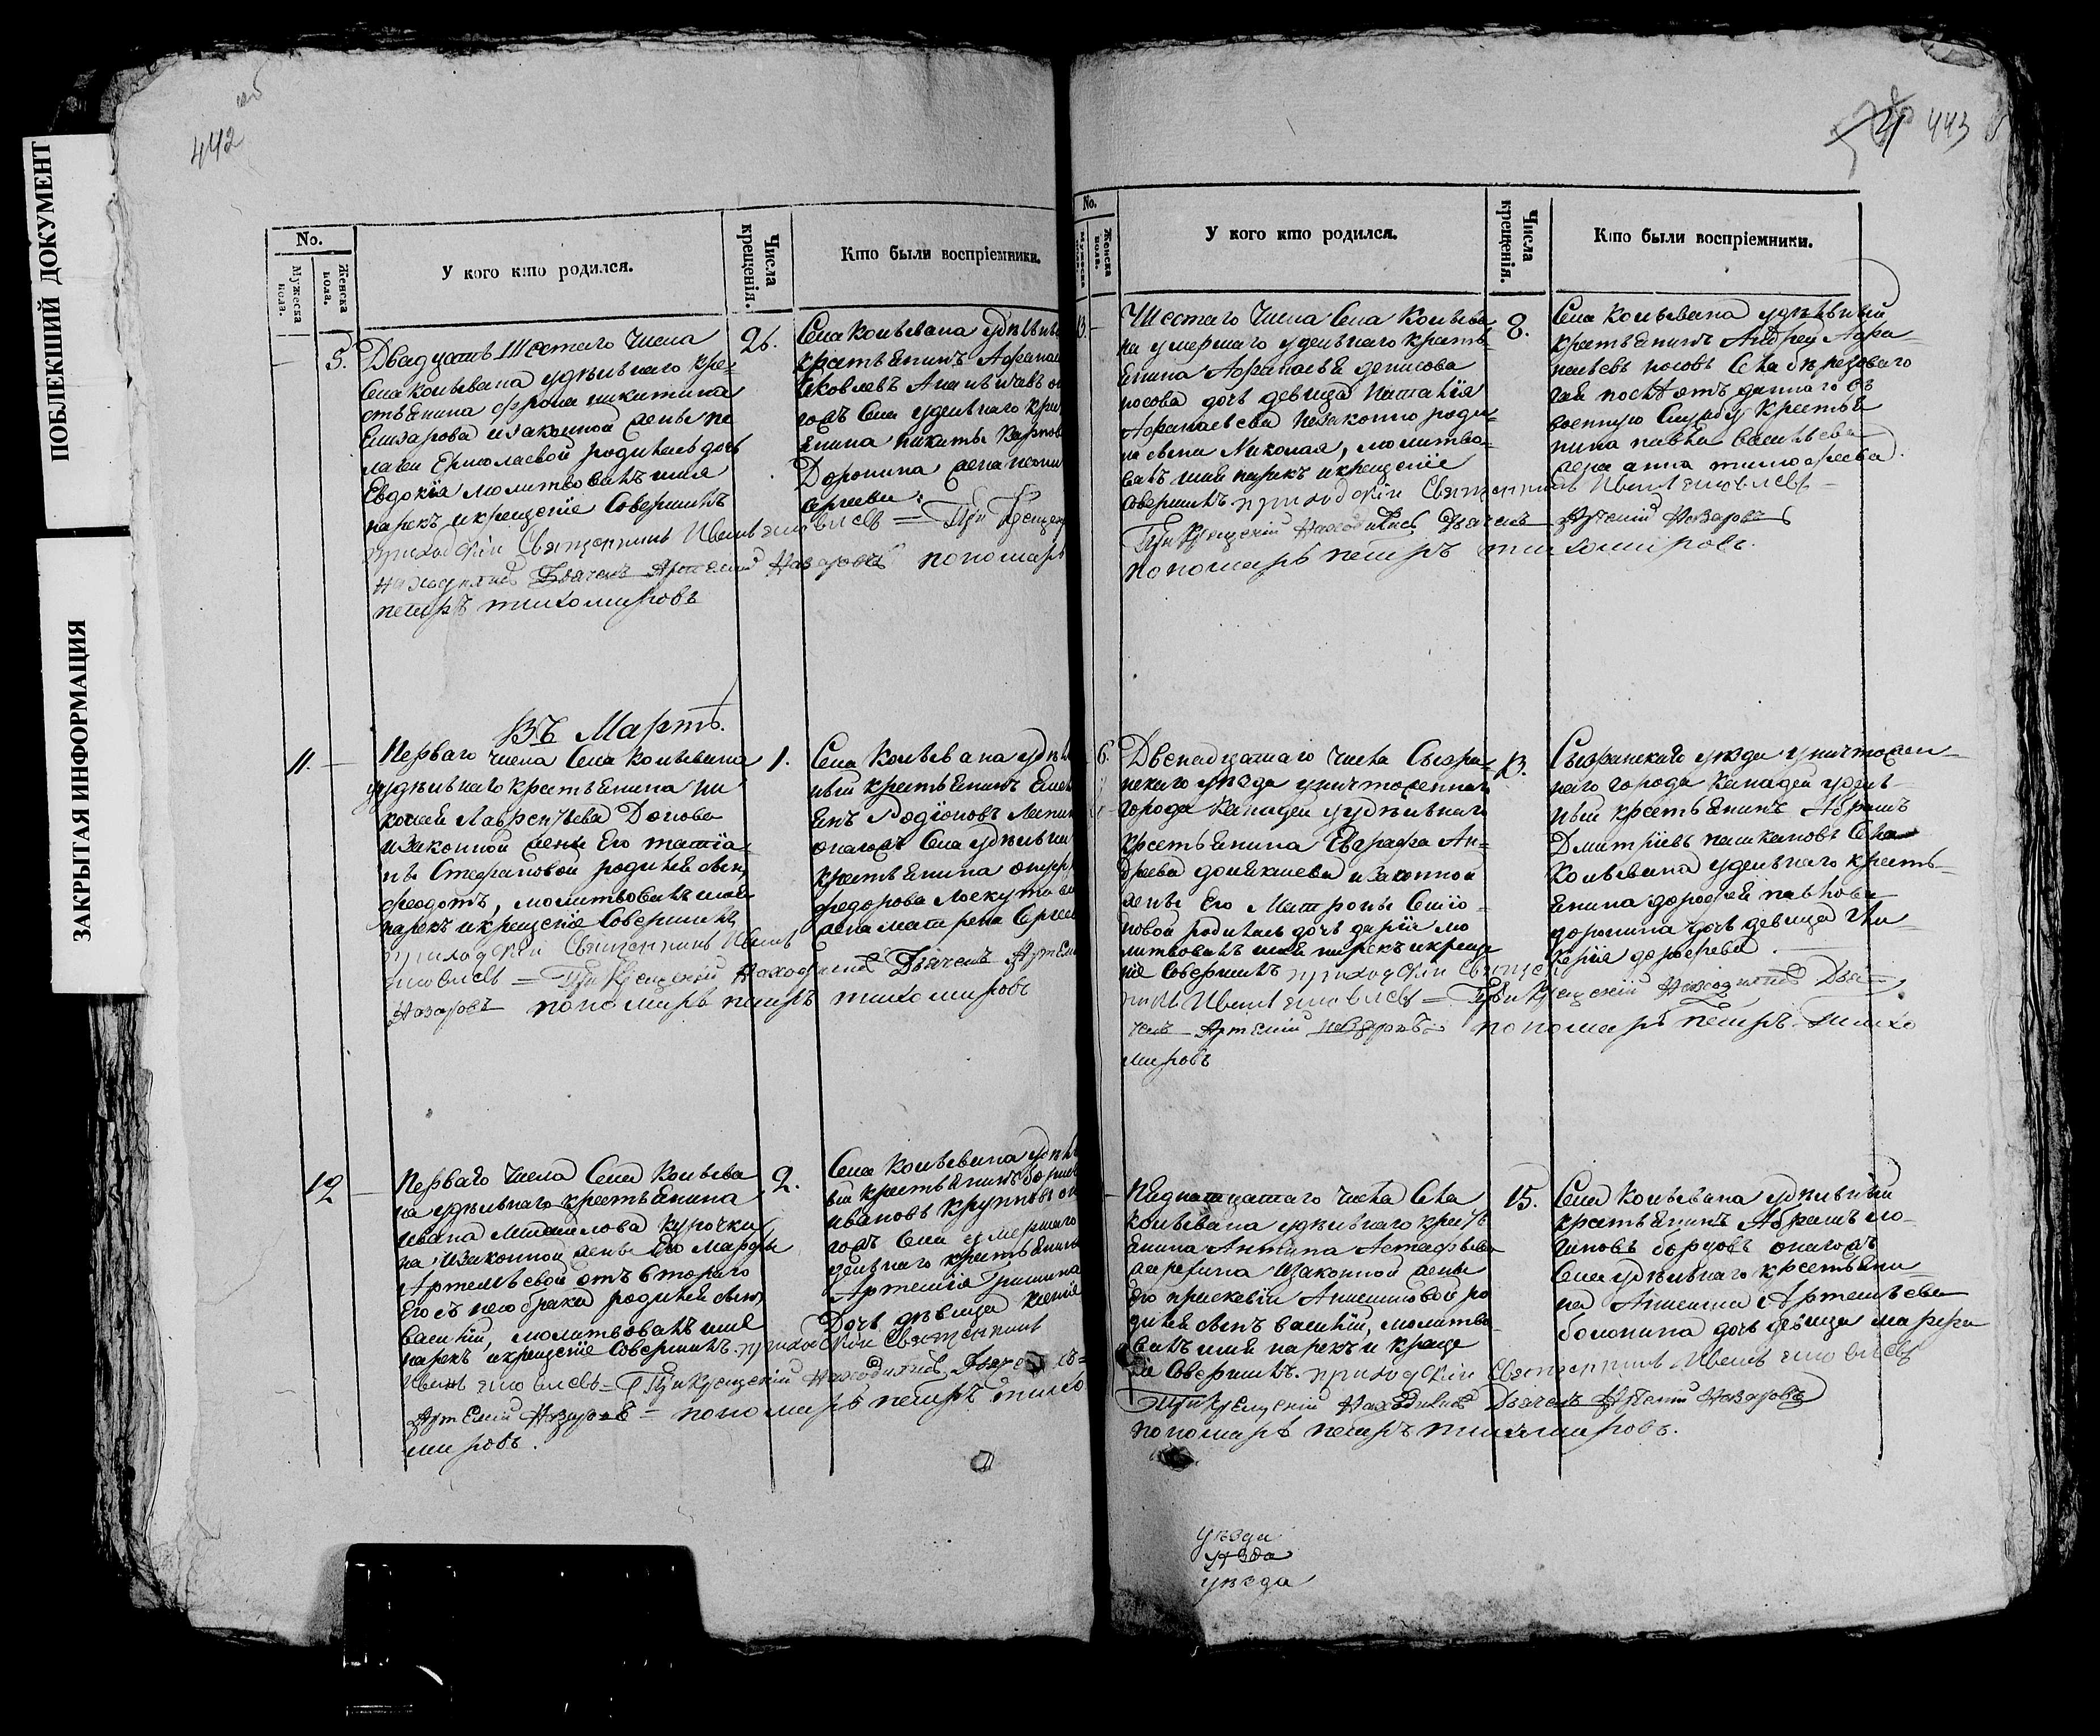 442
ПОБЛЕКШИЙ ДОКУМЕНТ
ЗАКРЫТАЯ ИНФОРМАЦИЯ
No.
Мужеска пола.
Женска пола.
У кого кто родился.
Числа крещенія.
Кто были воспріемники.
5.
Двадцать Шестаго числа
Села колывана удѣльнаго кре-
стьянина никитина
Елизарова изаконной жены пе
лагеи Ермолаевой родилась дочь
Евдокія молитвовалъ имя
нарекъ и крещеніе Совершилъ
приходскій Священникъ Иванъ
находился Дьячекъ Артемій Назаровъ пономарь
петръ тихомировъ
26.
Села Колывана удѣльны
крестьянинъ Афанас
Яковлевъ
Села удельнаго кре
янина никиты Карпов
Доронина жена
Сергѣева
Въ Мартѣ.
11.
Перваго числа Села колывана
удѣльнаго крестьянина ни
колая Лаврентьева Донова
изаконной жены Его татіа
ны Стефановой родился сынъ
феодотъ, молитвовалъ имя
нарекъ и крещеніе Совершилъ
приходскій Священникъ Иванъ
При Крещеніи Находился Дьячекъ Артем
Назаровъ пономарь петръ тихомировъ
1.
Села Колывана удѣл
ный крестьянинъ Емел
янъ Родіоновъ
онагожъ Села удѣльна
крестьянина
федорова
жена матрена Сергее
12
Перваго числа Села Колыва
на удѣльнаго крестьянина
ивана Михайлова курочки
на, изаконной жены Его Марфы
Артемьевой отъ втораго
Его съ нею брака родился сынъ
василій, молитвовалъ имя
нарекъ и крещеніе Совершилъ приходскій Священникъ
Иванъ При Крещеніи Находился Дьячекъ
Артемій Назаровъ пономарь петръ тихо
мировъ.
2.
Села Колывана удѣл
ый крестьянинъ
ивановъ
гожъ Села умершаго
дельнаго крестьянина
Артемія Гришина
Дочь дѣвица ксенія
443
No.
Мужеска пола.
Женска пола.
У кого кто родился.
Числа крещенія.
Кто были воспріемники.
13
Шестаго числа Села Колыва
на умершаго удельнаго кресть-
янина Афанасья денисова
носова дочь девица Наталія
Афанасьева Незаконно роди-
ла сына Николая, молитво-
валъ имя нарекъ и крещеніе
совершилъ приходскій Священникъ Иванъ
При Крещеніи Находился Дьячекъ Артемій Назаровъ
пономарь петръ тихомировъ.
8.
Села колывана удѣльный
крестьянинъ Андрей Афа-
насьевъ носовъ Села
отъ даннаго въ
военную Службу Крестья
нина павла васильева
жена анна тимофеева.
6.
Двенадцатаго числа Сызра-
нскаго уѣзда уничтоженнаго
города Канадей удѣльнаго
крестьянина Евграфа Ан-
дреева изаконной
жены Его Матроны Симо-
новой родилась дочь дарія мо
литвовалъ имя нарекъ и креще
ніе Совершилъ приходскій Священ
никъ Иванъ При Крещеніи Находился Дья-
чекъ Артемій Назаровъ пономарь петръ тихо
мировъ
13.
Сызранскаго уѣзда уничтожен-
наго города Канадей удель-
ный крестьянинъ Абрамъ
Дмитріевъ Села
Колывана удельнаго кресть-
янина дорофея павлова
доронина дочь девица
дорофеева
Пяднатцатаго числа Села
колывана удѣльнаго кресть
янина Антипа Астафьева
изаконной жены
Его прасковіи Анисимовой ро
дился сынъ василій, молитво
валъ имя нарекъ и креще
ніе Совершилъ. приходскій Священникъ Иванъ
При Крещеніи Находился Дьячекъ Артемій Назаровъ
пономарь петръ тихомировъ.
15.
Села Колывана удѣльный
крестьянинъ Абрамъ ло-
гиновъ борцовъ онагожъ
Села удѣльнаго крестьяни-
на Анисима Артемьева
дочь дѣвица марфа
уѣзда
уѣзда
уѣзда